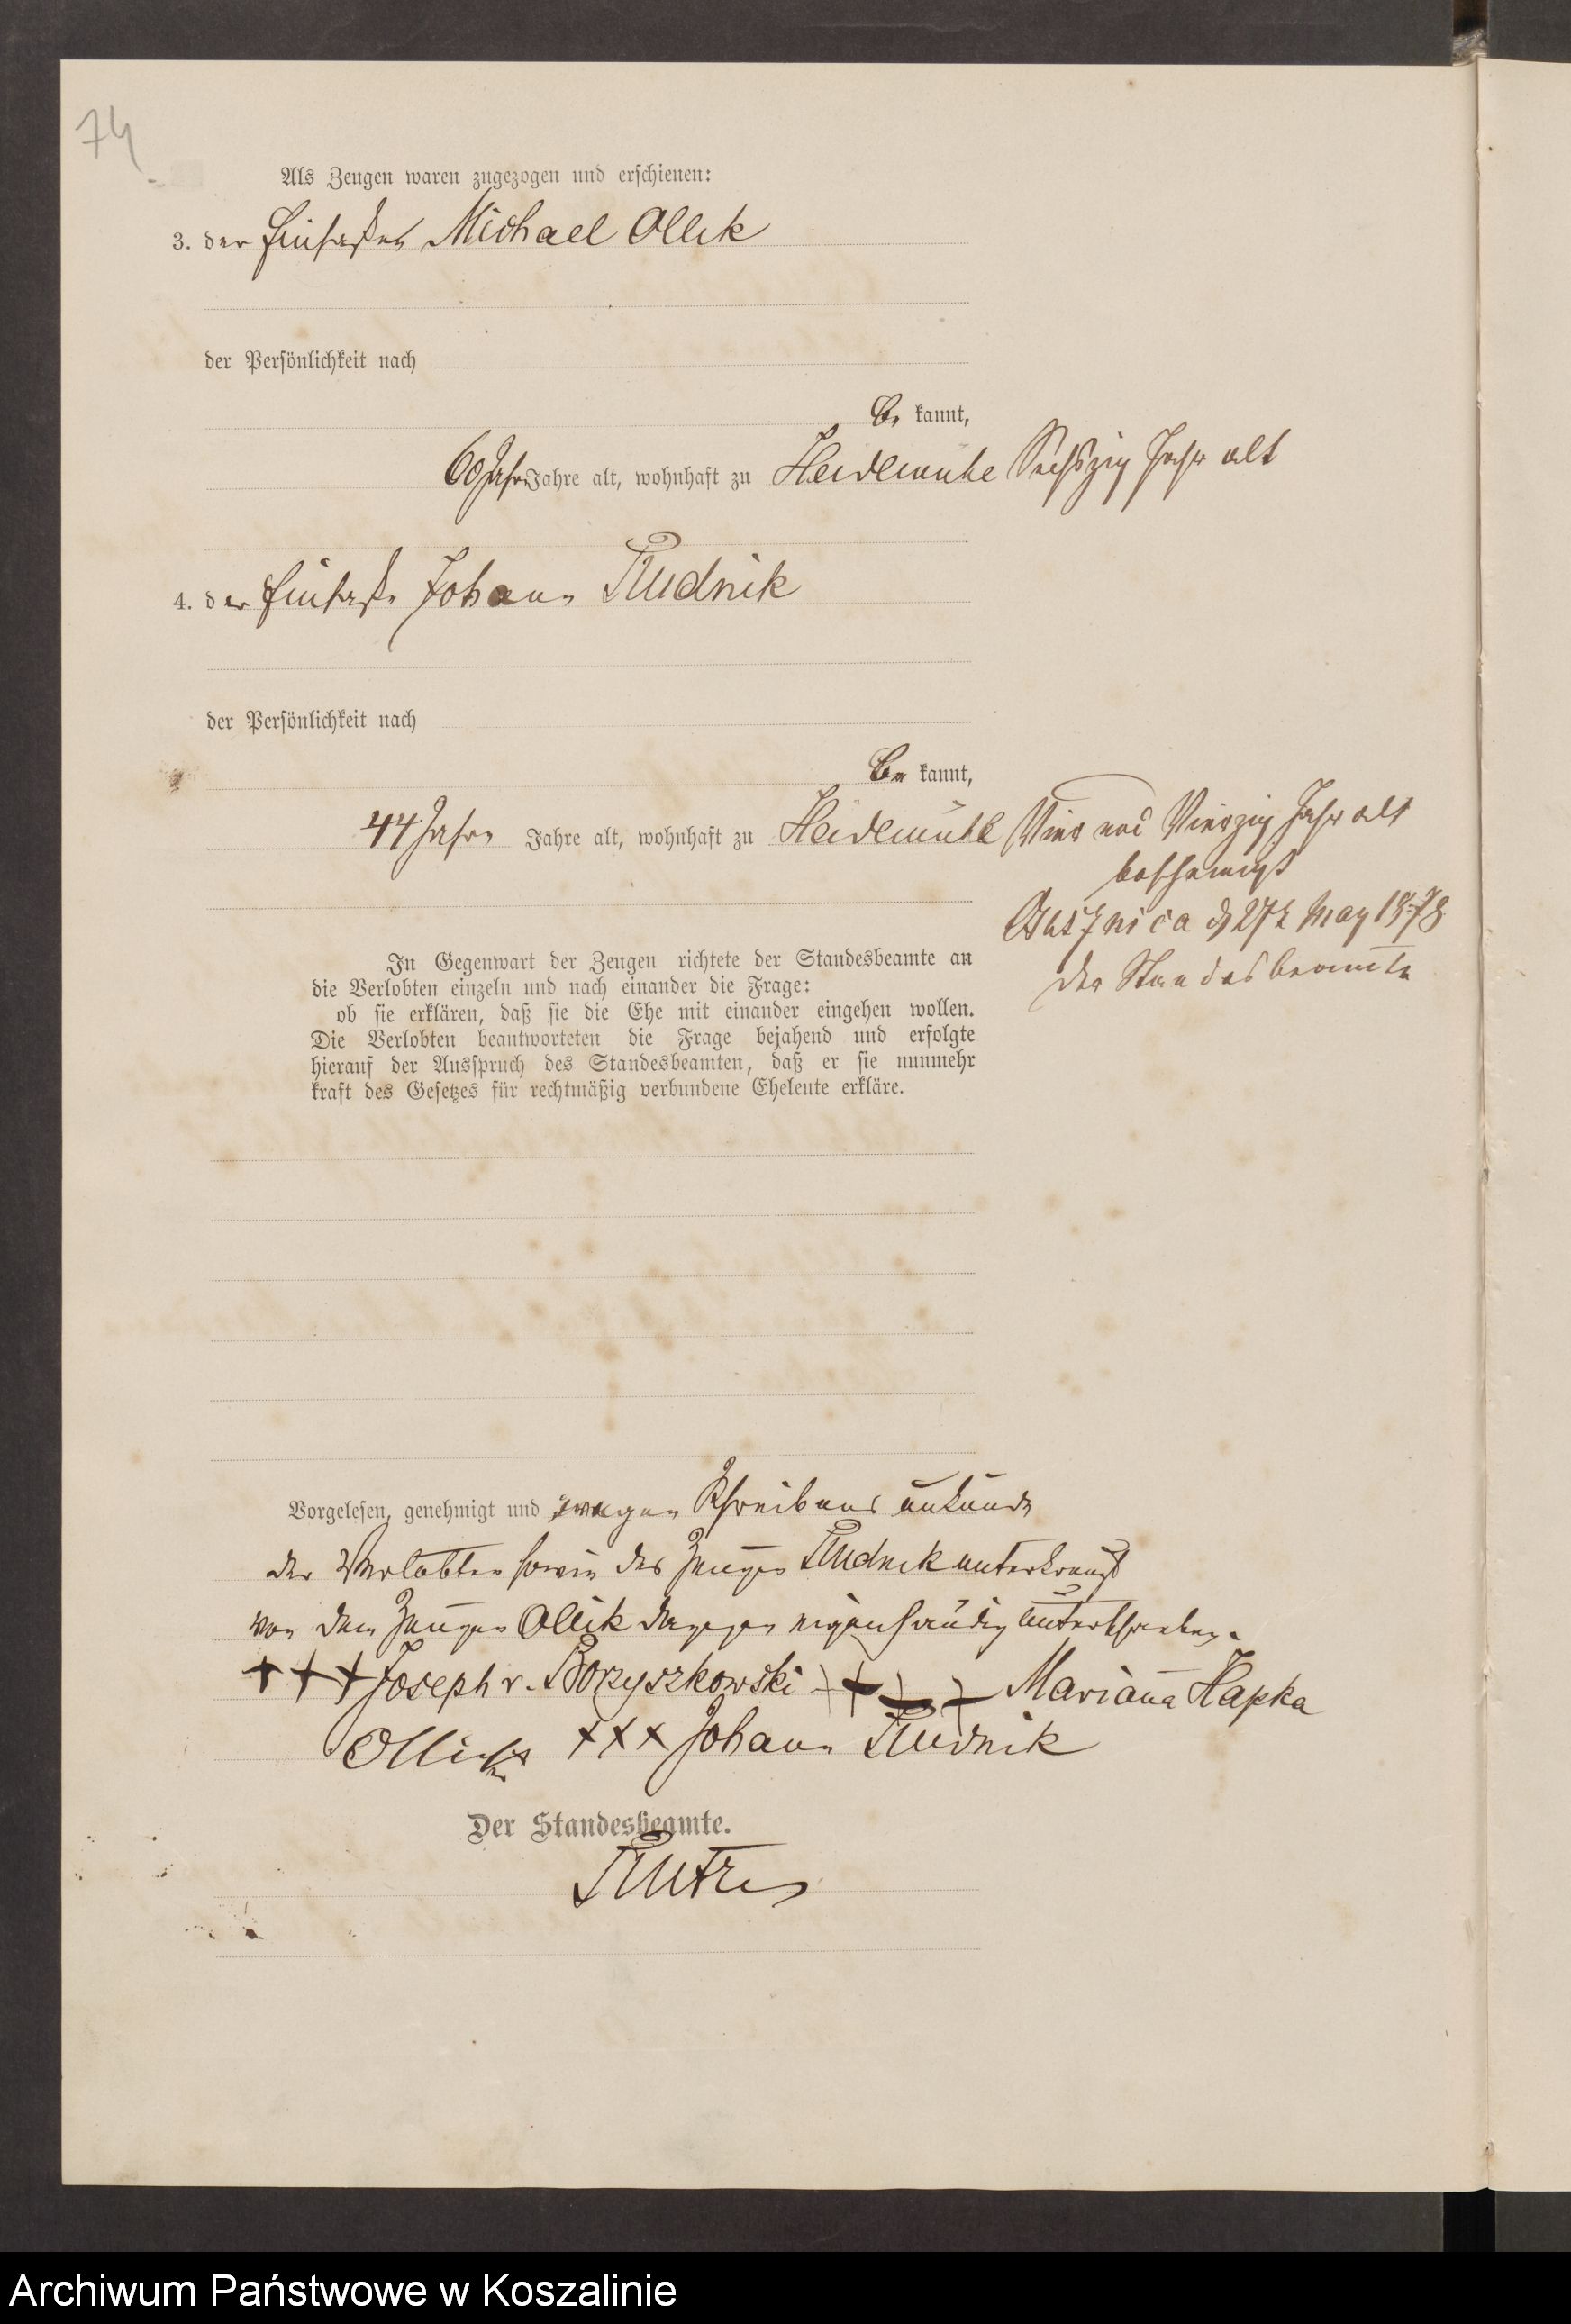 74
Als Zeugen waren zugezogen und erschienen:
3. der Einsaßen Michael Ollik
der Persönlichkeit nach
be kannt,
60 Jahre Jahre alt, wohnhaft zu Heidemühe Sechszig Jahr alt
4. der Einsaße Johann Rudnik
der Persönlichkeit nach
be kannt,
44 Jahre Jahre alt, wohnhaft zu Heidemühl Vier und Vierzig Jahr alt
bescheinigt
27t May 1878
Der Standesbeamte
In Gegenwart der Zeugen richtete der Standesbeamte an
die Verlobten einzeln und nach einander die Frage:
ob sie erklären, daß sie die Ehe mit einander eingehen wollen.
Die Verlobten beantworteten die Frage bejahend und erfolgte
hierauf der Ausspruch des Standesbeamten, daß er sie nunmehr
kraft des Gesetzes für rechtmäßig verbundene Eheleute erkläre.
Vorgelesen, genehmigt und wegen Schreibens unkunde
der Verlobten sowie des Zeugen Rudnik unterkreuzt
von dem Zeugen Ollik dagegen eigenhändig unterschrieben.
+++ Joseph v. Borzyszkowski +++ Mariana Hapka
Ollik xxx Johann Rudnik
Der Standesbeamte.
Archiwum Państwowe w Koszalinie